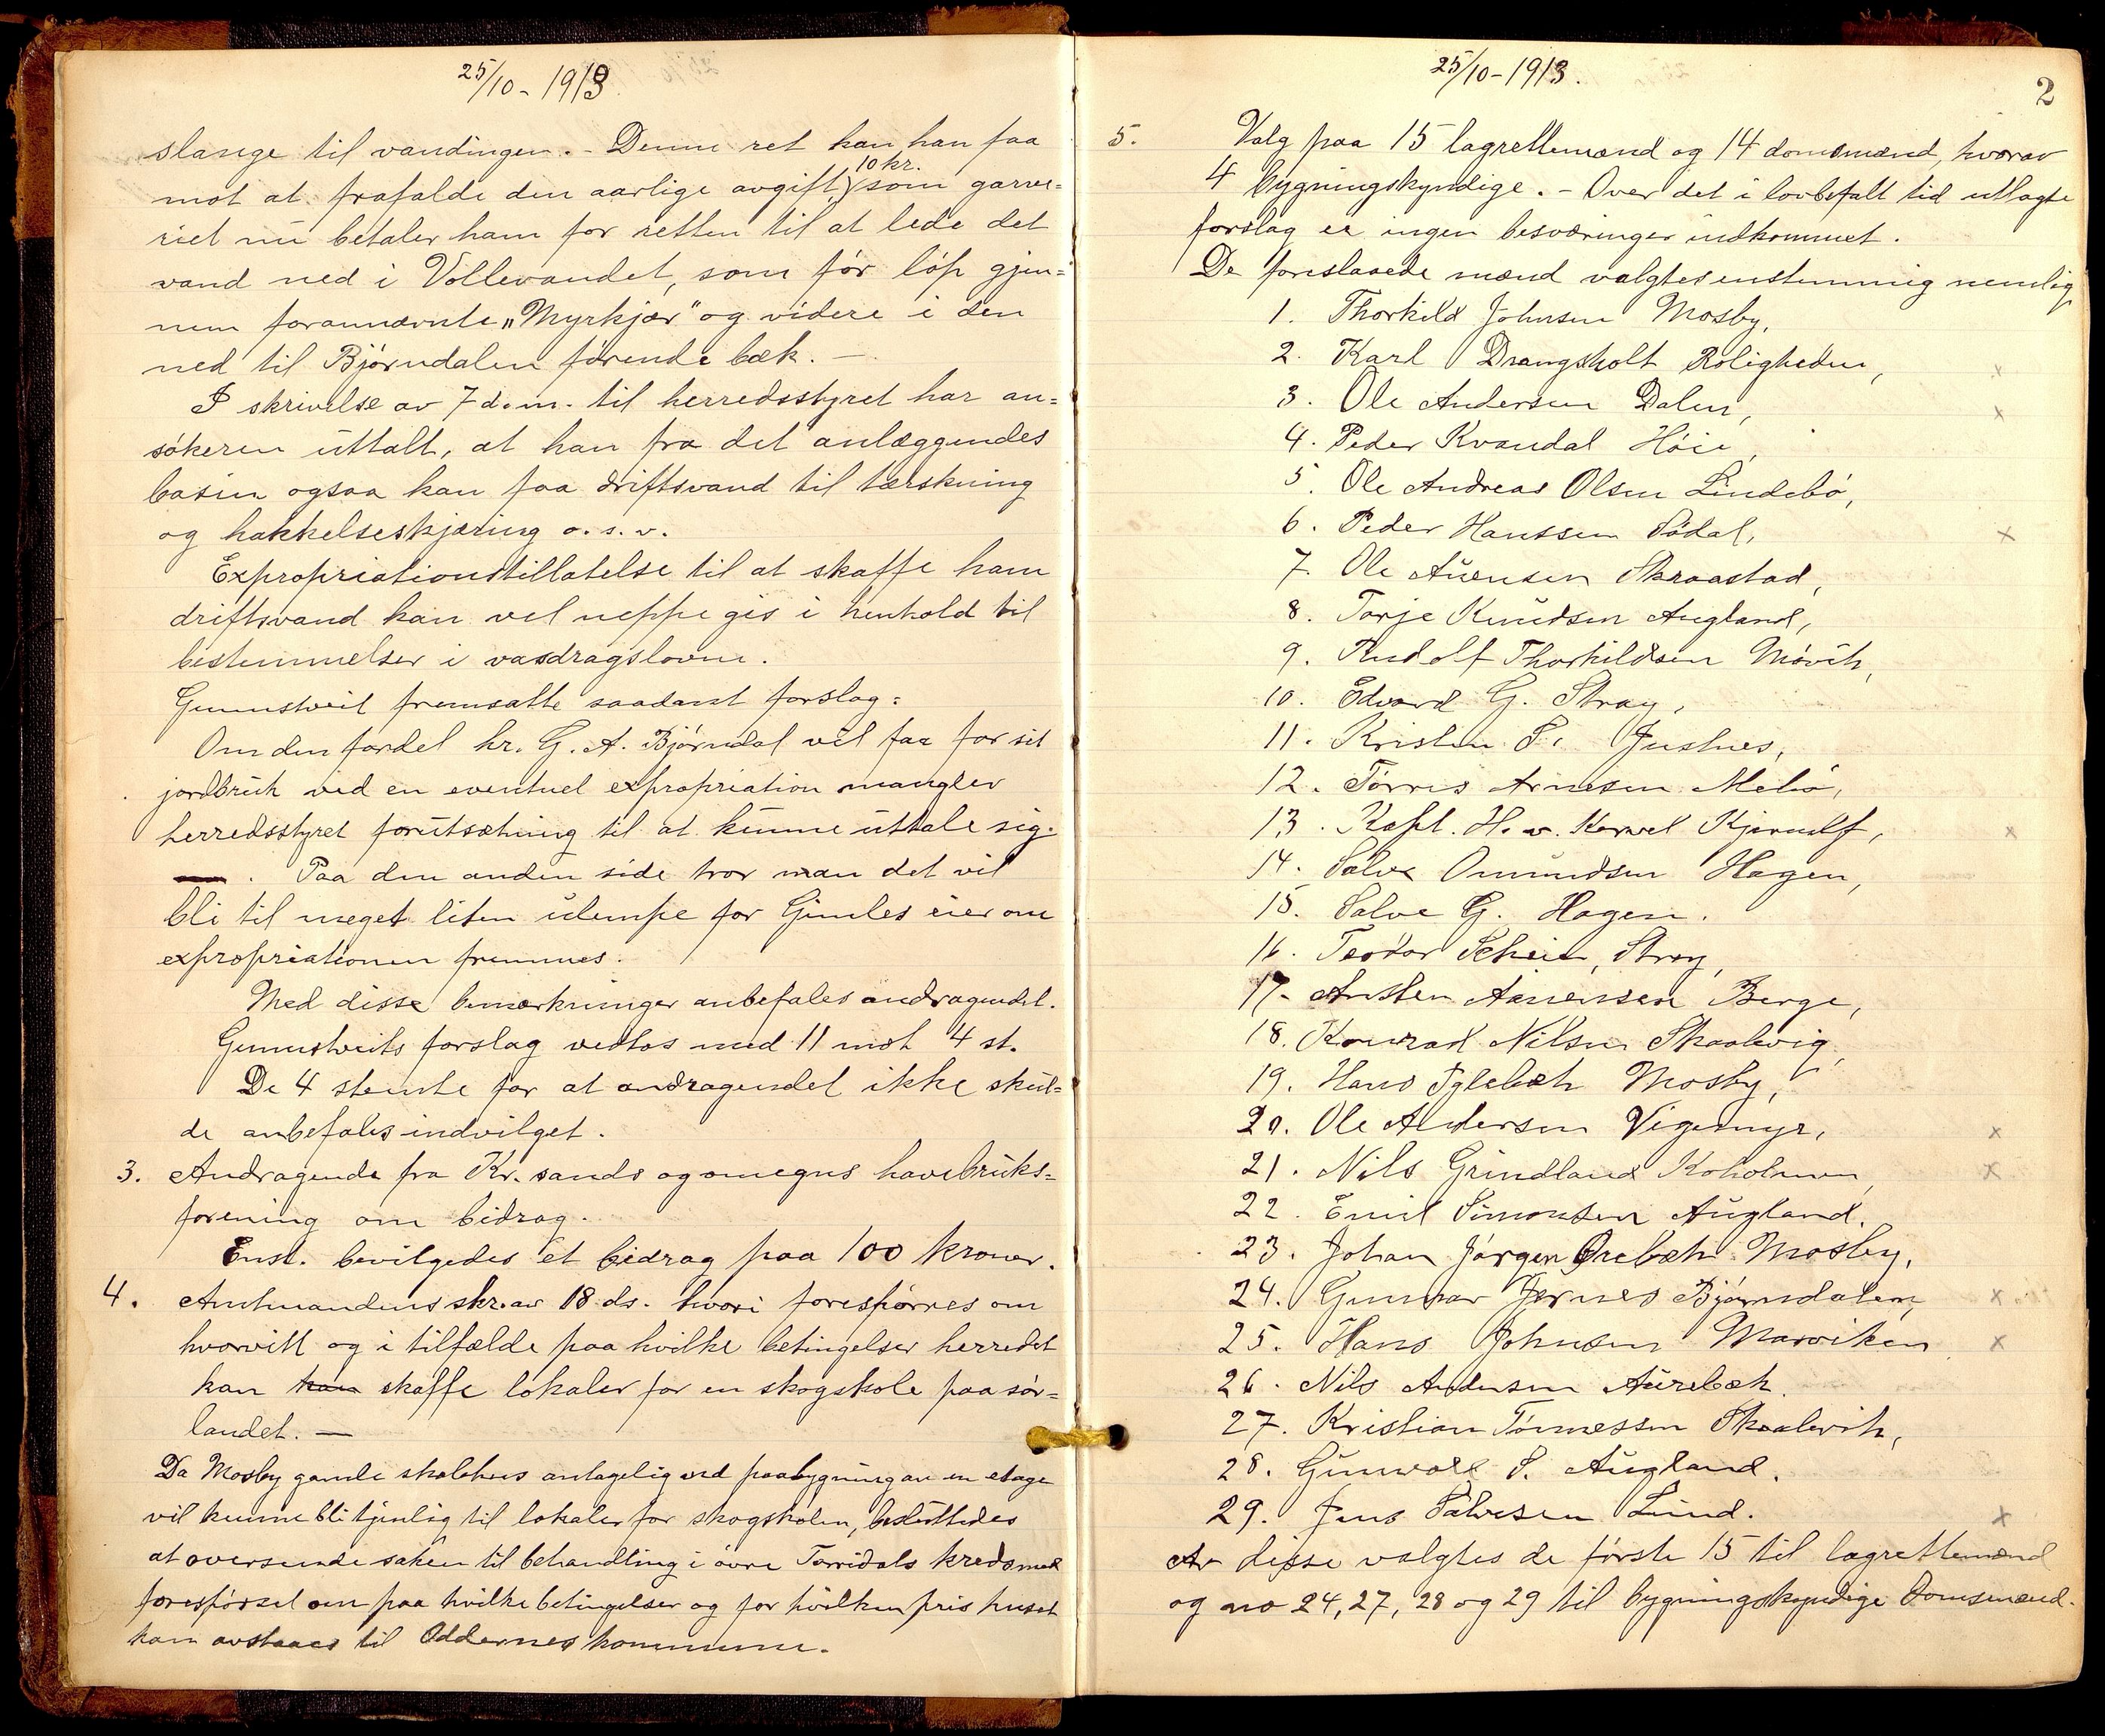 25/10 - 1913.
slange til vandingen. - Denne ret kan han faa
mot at frafalde den aarlige avgift, 10 kr. som garve=
riet nu betaler ham for retten til at lede det
vand ned i Vollevandet, som før løp gjen=
nem forannævnte „Myrkjær" og videre i den
ned til Bjørndalen førende bæk. —
I skrivelse av 7 d.m. til herredsstyret har an=
søkeren uttalt, at han fra det anlæggendes
basin ogsaa kan faa driftsvand til tærskning
og hakkelseskjæring o.s.v.
Expropriationstillatelse til at skaffe ham
driftsvand kan vel neppe gis i henhold til
bestemmelser i vasdragsloven.
Gumstveit fremsatte saadant forslag:
Om den fordel hr. G. A. Bjørndal vil faa for sit
jordbruk ved en eventuel expropriation mangler
herredsstyret forutsætning til at kunne uttale sig.
Paa den anden side tror man det vil
bli til meget liten ulempe for Gimles eier om
expropriationen fremmes.
Med disse bemærkninger anbefales andragendet.
Gumstveits forslag vedtos med 11 mot 4 st.
De 4 stemte for at andragendet ikke skul=
de anbefales indvilget.
3. Andragende fra Kr.sands og omegns havebruks=
forening om bidrag.
Enst. bevilgedes et bidrag paa 100 kroner.
4. Amtmandens skr. av 18 ds. hvori forespørres om
hvorvitt og i tilfælde paa hvilke betingelser herredet
kan kan skaffe lokaler for en skogskole paa sør=
landet. —
Da Mosby gamle skolehus antagelig ved paabygning av en etage
vil kunne bli tjenlig til lokaler for skogskolen, besluttedes
at oversende saken til behandling i øvre Torridals kreds med
forespørsel om paa hvilke betingelser og for hvilken pris huset
kan avstaaes til Oddernes kommune.
25/10 - 1913.
2
5. Valg paa 15 lagrettemænd og 14 domsmænd, hvorav
4 bygningskyndige. - Over det i lovbefalt tid utlagte
forslag er ingen besværinger indkommet.
De foreslaaede mænd valgtes enstemmig nemlig
1. Thorkild Johnsen Mosby,
2. Karl Drangsholt Roligheden,
3. Ole Andersen Dalen,
4. Peder Kvandal Høie,
5. Ole Andreas Olsen Lindebø,
6. Peder Hanssen Sødal,
7. Ole Auensen Skraastad,
8. Torje Knudsen Augland,
9. Rudolf Thorkildsen Møvik,
10. Edvard G. Stray,
11. Kristen S. Justnes,
12. Tørres Arnesen Mebø,
13. Kapt. H. v. Kjerulf,
14. Salve Omundsen Hagen,
15. Salve G. Hagen.
16. Teodor Scheie, Stray,
17. Ansten Aanensen Berge,
18. Konrad Nilsen Skaalevig,
19. Hans Iglebæk Mosby,
20. Ole Andersen Vigemyr,
21. Nils Grindland Koholmen,
22. Emil Simonsen Augland.
23. Johan Jørgen Ørebæk Mosby,
24. Gunnar Jernes Bjørndalen,
25. Hans Johnsen Marviken
26. Nils Andersen Aurebæk.
27. Kristian Tønnessen Skaalevik,
28. Gunvald S. Augland.
29. Jens Salvesen Lund.
Av disse valgtes de første 15 til lagrettemænd
og no 24, 27, 28 og 29 til bygningskyndige domsmænd.